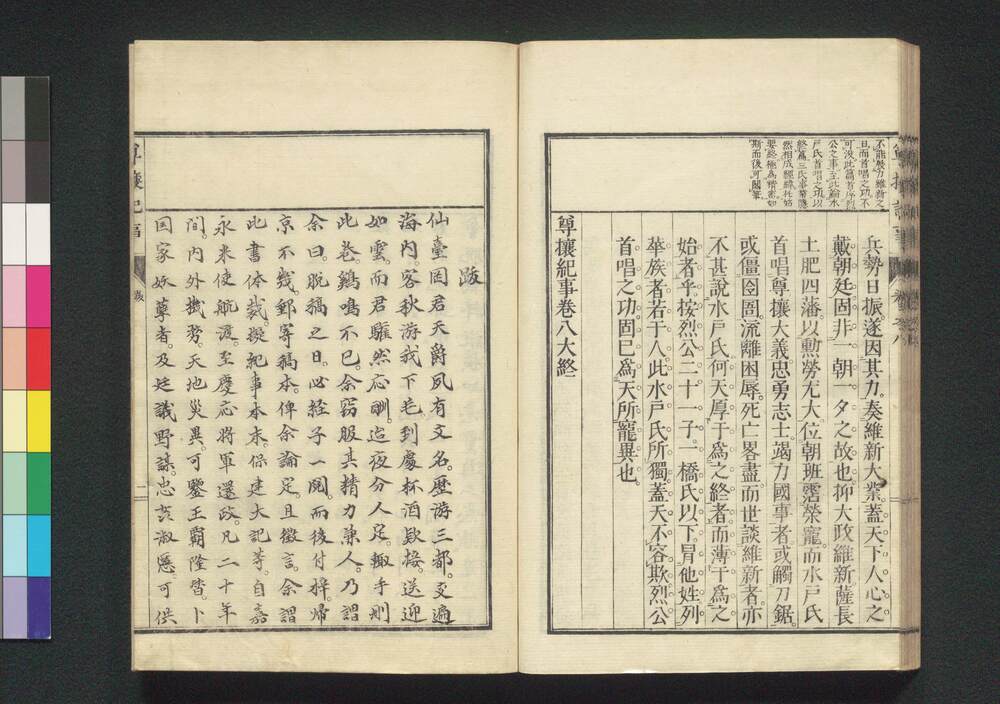 不能與力維新之
且而首唱之功不
可沒此篇首序烈
公之事至此論水
戸氏首唱之功以
終篇三氏事業隱
然相成經緯以始
要終極為精密如
斯而後可閣筆
兵勢日振。遂因其力。奏維新大業。蓋天下人心之
戴朝廷。固非一朝一夕之故也。抑大政維新。薩長
土肥四藩。以勳勞尤大。位朝班。霑榮寵。而水戸氏
首唱尊攘大義。忠勇志士。竭力國事者。或觸刀鋸。
或僵囹圄。流離困辱。死亡畧盡。而世談維新者。亦
不甚說水戸氏。何天厚于為之終者。而薄于為之
始者乎。按烈公二十一子。一橋氏以下。冒他姓列
華族者若干人。此水戸氏所獨。蓋天不容欺烈公
首唱之功。固已為天所寵異也。
尊攘紀事卷八大終
跋
仙臺岡君天爵。夙有文名。歷游三都。交遍
海内。客秋游我下毛。到處杯酒歡接。送迎
如雲。而君驩然応酬。迨夜分人定。輙手刪
此卷。鷄鳴不已。余竊服其精力兼人。乃謂
余曰。脱稿之日。必経子一閲。而後付梓。帰
京不幾。郵寄稿本。俾余論定。且徴言。余謂
此書体裁。擬紀事本末。保建大記等。自嘉
永米使航渡。至慶応将軍還政。凡二十年
間。内外機務。天地災異。可鑒王覇隆替。卜
国家妖孼者。及廷議野謀。忠姦淑慝。可供
尊攘紀事
跋
一